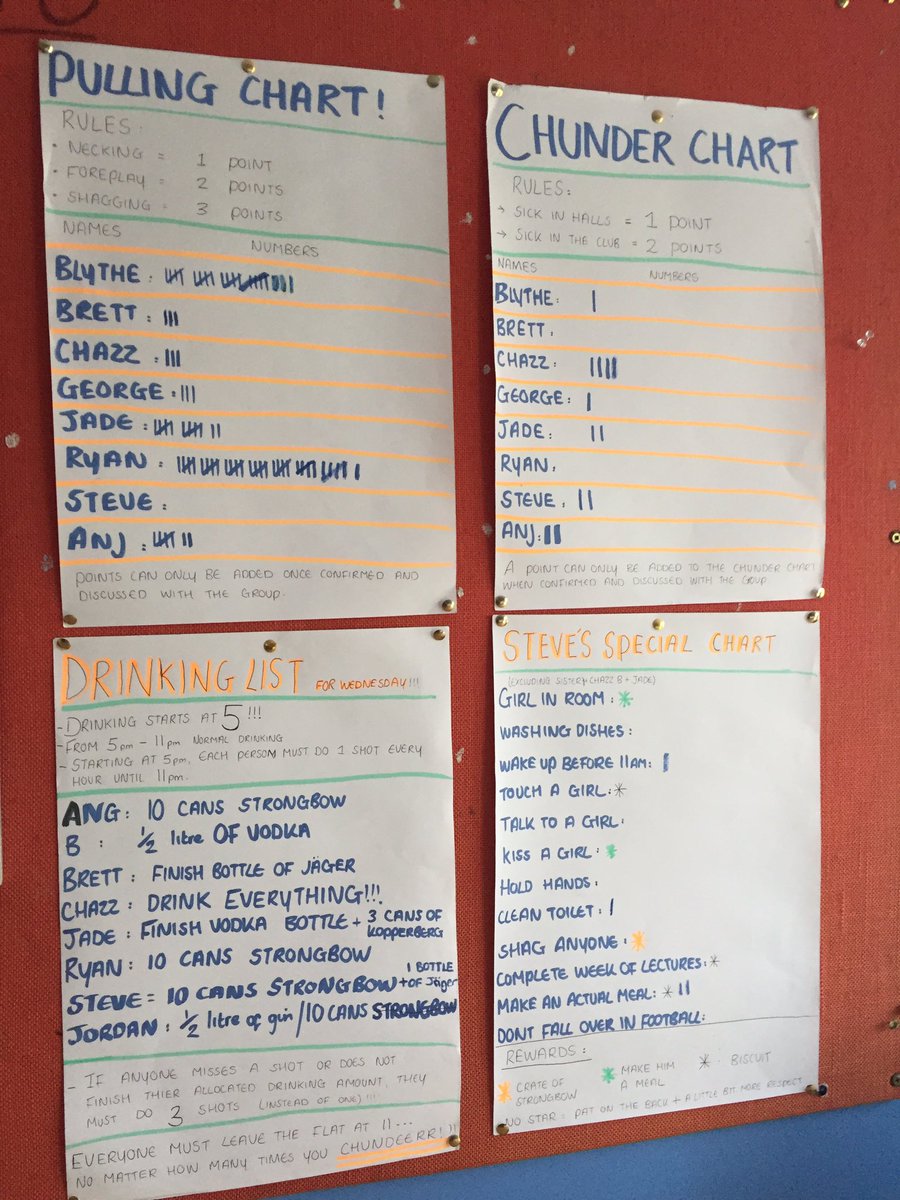 PULLING CHART!
RULES:
• NECKING = 1 POINT
• FOREPLAY = 2 POINTS
• SHAGGING = 3 POINTS
NAMES NUMBERS
BLYTHE:
BRETT: III
CHAZZ: III
GEORGE: III
JADE:
RYAN:
STEVE:
ANJ:
POINTS CAN ONLY BE ADDED ONCE CONFIRMED AND
DISCUSSED WITH THE GROUP.
CHUNDER CHART
RULES:
→ SICK IN HALLS = 1 POINT
→ SICK IN THE CLUB = 2 POINTS
NAMES NUMBERS
BLYTHE: I
BRETT.
CHAZZ: IIII
GEORGE: I
JADE: II
RYAN.
STEVE. II
ANJ: II
A POINT CAN ONLY BE ADDED TO THE CHUNDER CHART
WHEN CONFIRMED AND DISCUSSED WITH THE GROUP
DRINKING LIST FOR WEDNESDAY!!!
- DRINKING STARTS AT 5!!!
- FROM 5pm - 11pm NORMAL DRINKING
- STARTING AT 5pm, EACH PERSON MUST DO 1 SHOT EVERY
HOUR UNTIL 11pm.
ANG: 10 CANS STRONGBOW
B : ½ litre OF VODKA
BRETT: FINISH BOTTLE OF JÄGER
CHAZZ: DRINK EVERYTHING!!!.
JADE: FINISH VODKA BOTTLE + 3 CANS OF KOPPERBERG
RYAN: 10 CANS STRONGBOW
STEVE= 10 CANS STRONGBOW + 1 BOTTLE OF Jäger
JORDAN: ½ litre of gin / 10 CANS STRONGBOW
- IF ANYONE MISSES A SHOT OR DOES NOT
FINISH THIER ALLOCATED DRINKING AMOUNT, THEY
MUST DO 3 SHOTS (INSTEAD OF ONE)!!!
EVERYONE MUST LEAVE THE FLAT AT 11...
NO MATTER HOW MANY TIMES YOU CHUNDEERR!!!
STEVE'S SPECIAL CHART
(EXCLUDING SISTER, CHAZZ B + JADE)
GIRL IN ROOM: *
WASHING DISHES:
WAKE UP BEFORE 11AM: I
TOUCH A GIRL: *
TALK TO A GIRL:
KISS A GIRL: *
HOLD HANDS:
CLEAN TOILET: I
SHAG ANYONE: *
COMPLETE WEEK OF LECTURES: *
MAKE AN ACTUAL MEAL: * II
DONT FALL OVER IN FOOTBALL:
REWARDS:
* CRATE OF STRONGBOW * MAKE HIM A MEAL * BISCUIT
NO STAR: PAT ON THE BACK + A LITTLE BIT MORE RESPECT